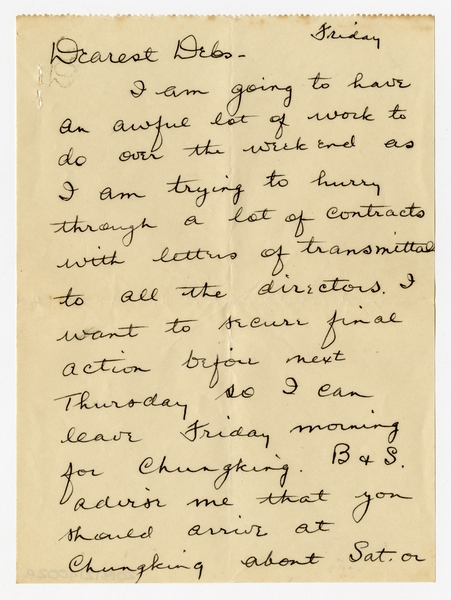 Friday
Dearest Debs-
I am going to have
an awful lot of work to
do over the week end as
I am trying to hurry
through a lot of contracts
with letters of transmittal
to all the directors. I
want to secure final
action before next
Thursday so I can
leave Friday morning
for Chungking. B & S.
advise me that you
should arrive at
Chungking about Sat. or